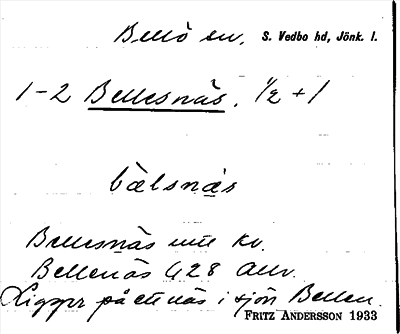 Bellö sn, S. Vedbo hd, Jönk. l.
1-2 Bellesnäs. 1/2 + 1
bälsnäs
Bellesnäs mtl Kv.
Bellenäs 428 Allv.
Ligger på ett näs i sjön Bellen.
FRITZ ANDERSSON 1933